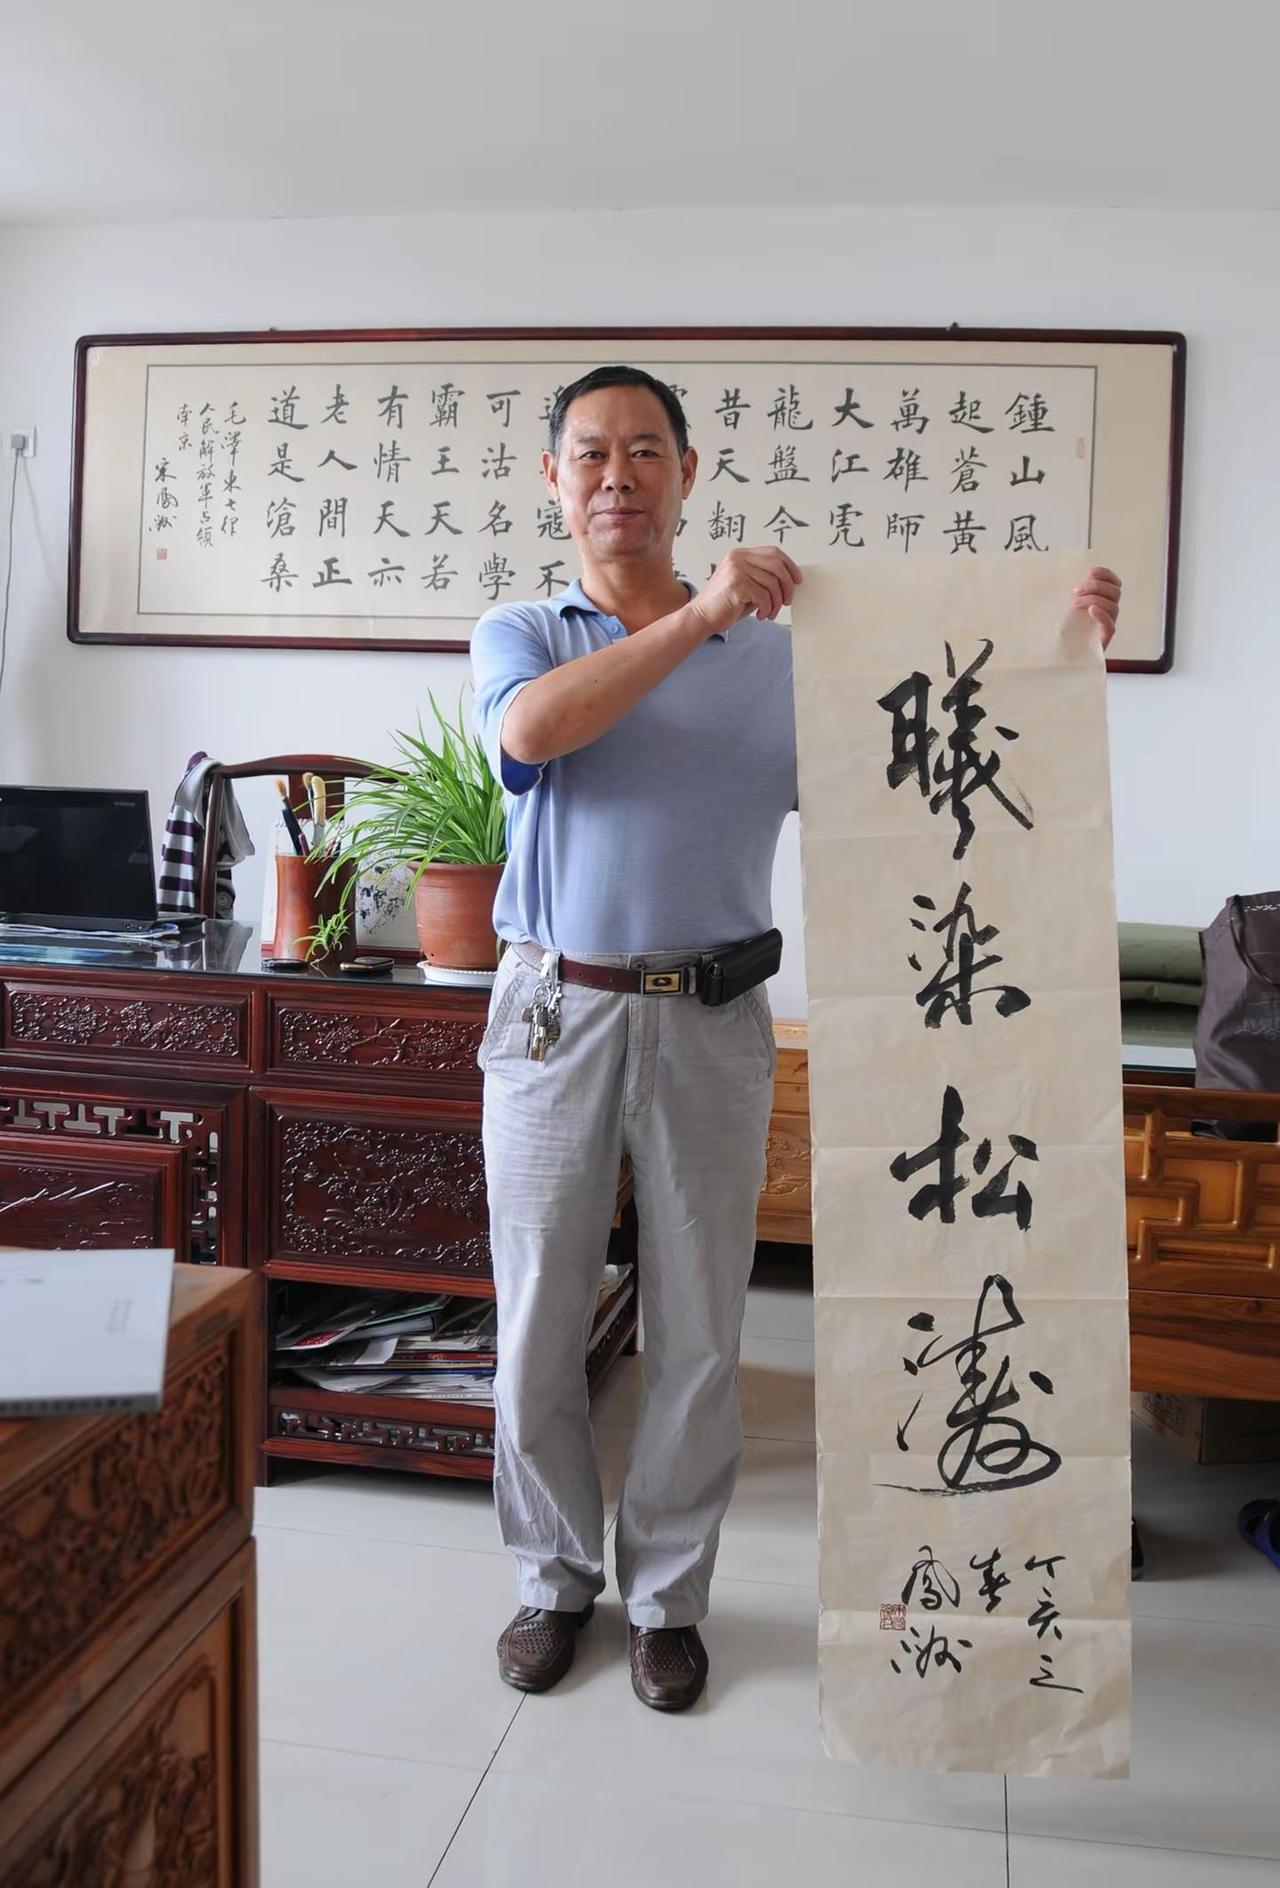 鍾山風
起蒼黃
萬雄師
大江虎
龍盤今
昔天翻
寇不
可沽名學
霸王天若
有情天亦
老人間正
道是滄桑
毛澤東七律
人民解放軍占領
南京
宋鳳洲
曦染松濤
丁亥之
春
鳳洲